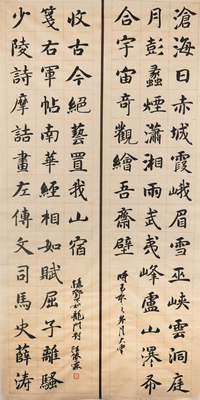 滄海日赤城霞峨眉雪巫峽雲洞庭
月彭蠡煙瀟湘雨武夷峰廬山瀑布
合宇宙奇觀繪吾齋壁
少陵詩摩詰畫左傳文司馬史薛濤
箋右軍帖南華經相如賦屈子離騷
收古今絕藝置我山窗